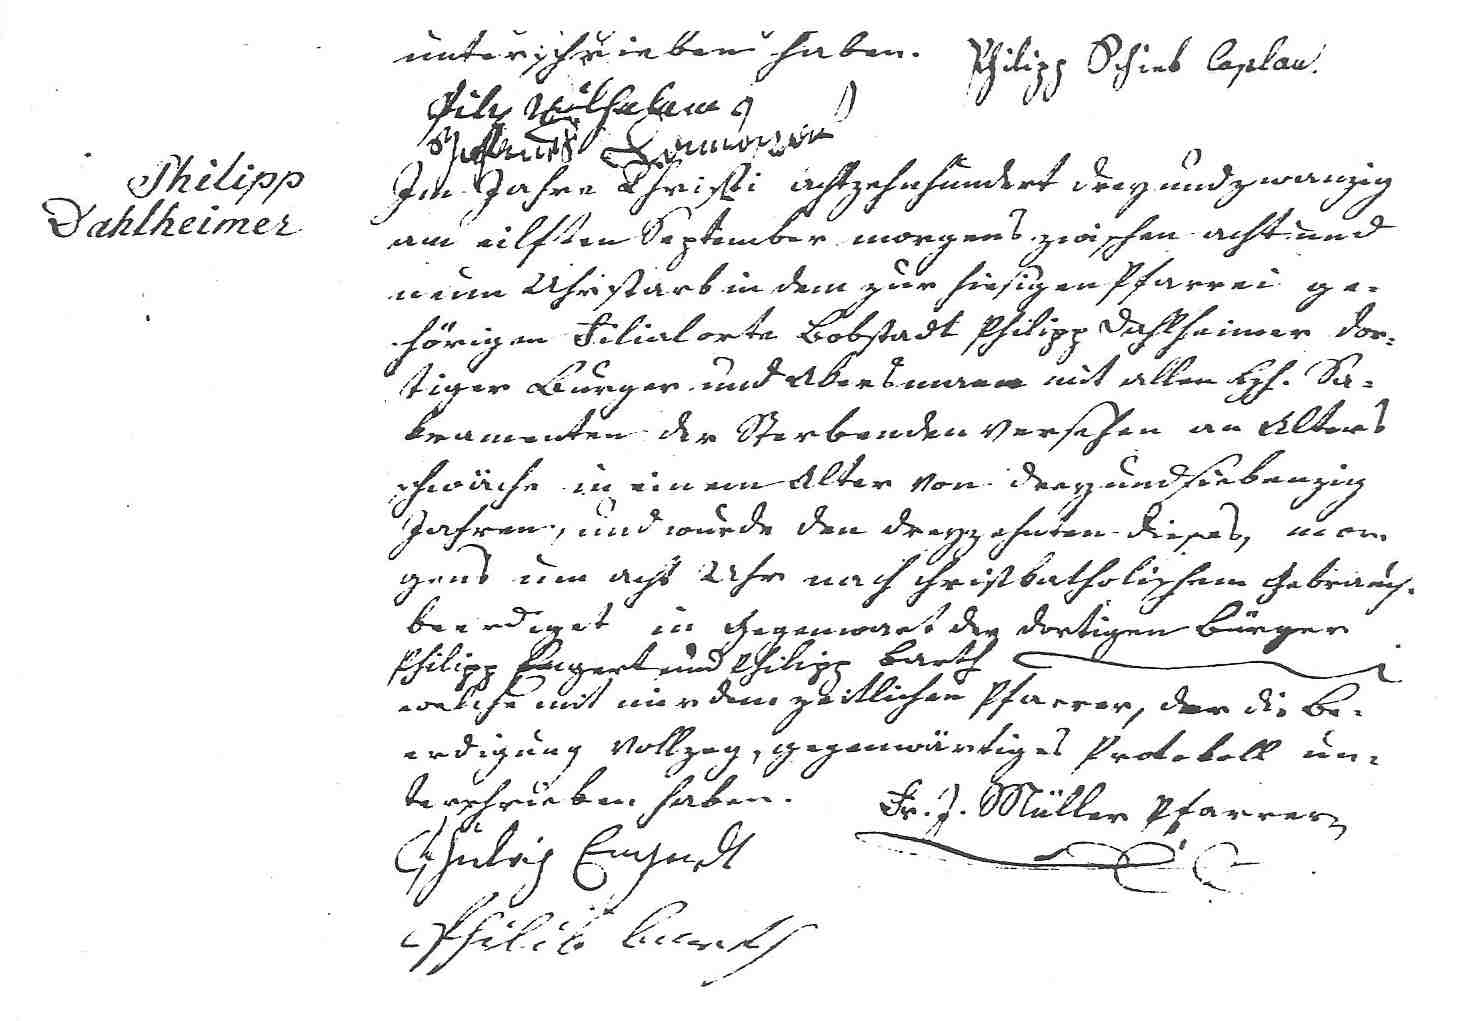 unterschrieben haben. Philipp Schieb Caplan.
Wilhelm
Johannes
Philipp
Dahlheimer
Im Jahre Christi achtzehnhundert drey und zwanzig
am eilften September morgens zwischen acht und
neun Uhr starb in dem zur hiesigen Pfarrei ge-
hörigen Filialorte Bobstadt Philipp Dahlheimer dor-
tiger Burger und Akersmann mit allen hh. Sa-
kramenten der Sterbenden versehen an Alters
schwäche in einem Alter von dreyundsiebenzig
Jahren, und wurde den dreyzehnten dieses, mor-
gens um acht Uhr nach christkatholischem Gebrauch
beerdiget in Gegenwart der dortigen Bürger
Philipp Engert und Philipp Barth
welche mit mir dem zeitlichen Pfarrer, der die Be-
erdigung vollzog, gegenwärtiges Protokoll un-
terschrieben haben. Fr. J. Müller Pfarrer
Philib Barth